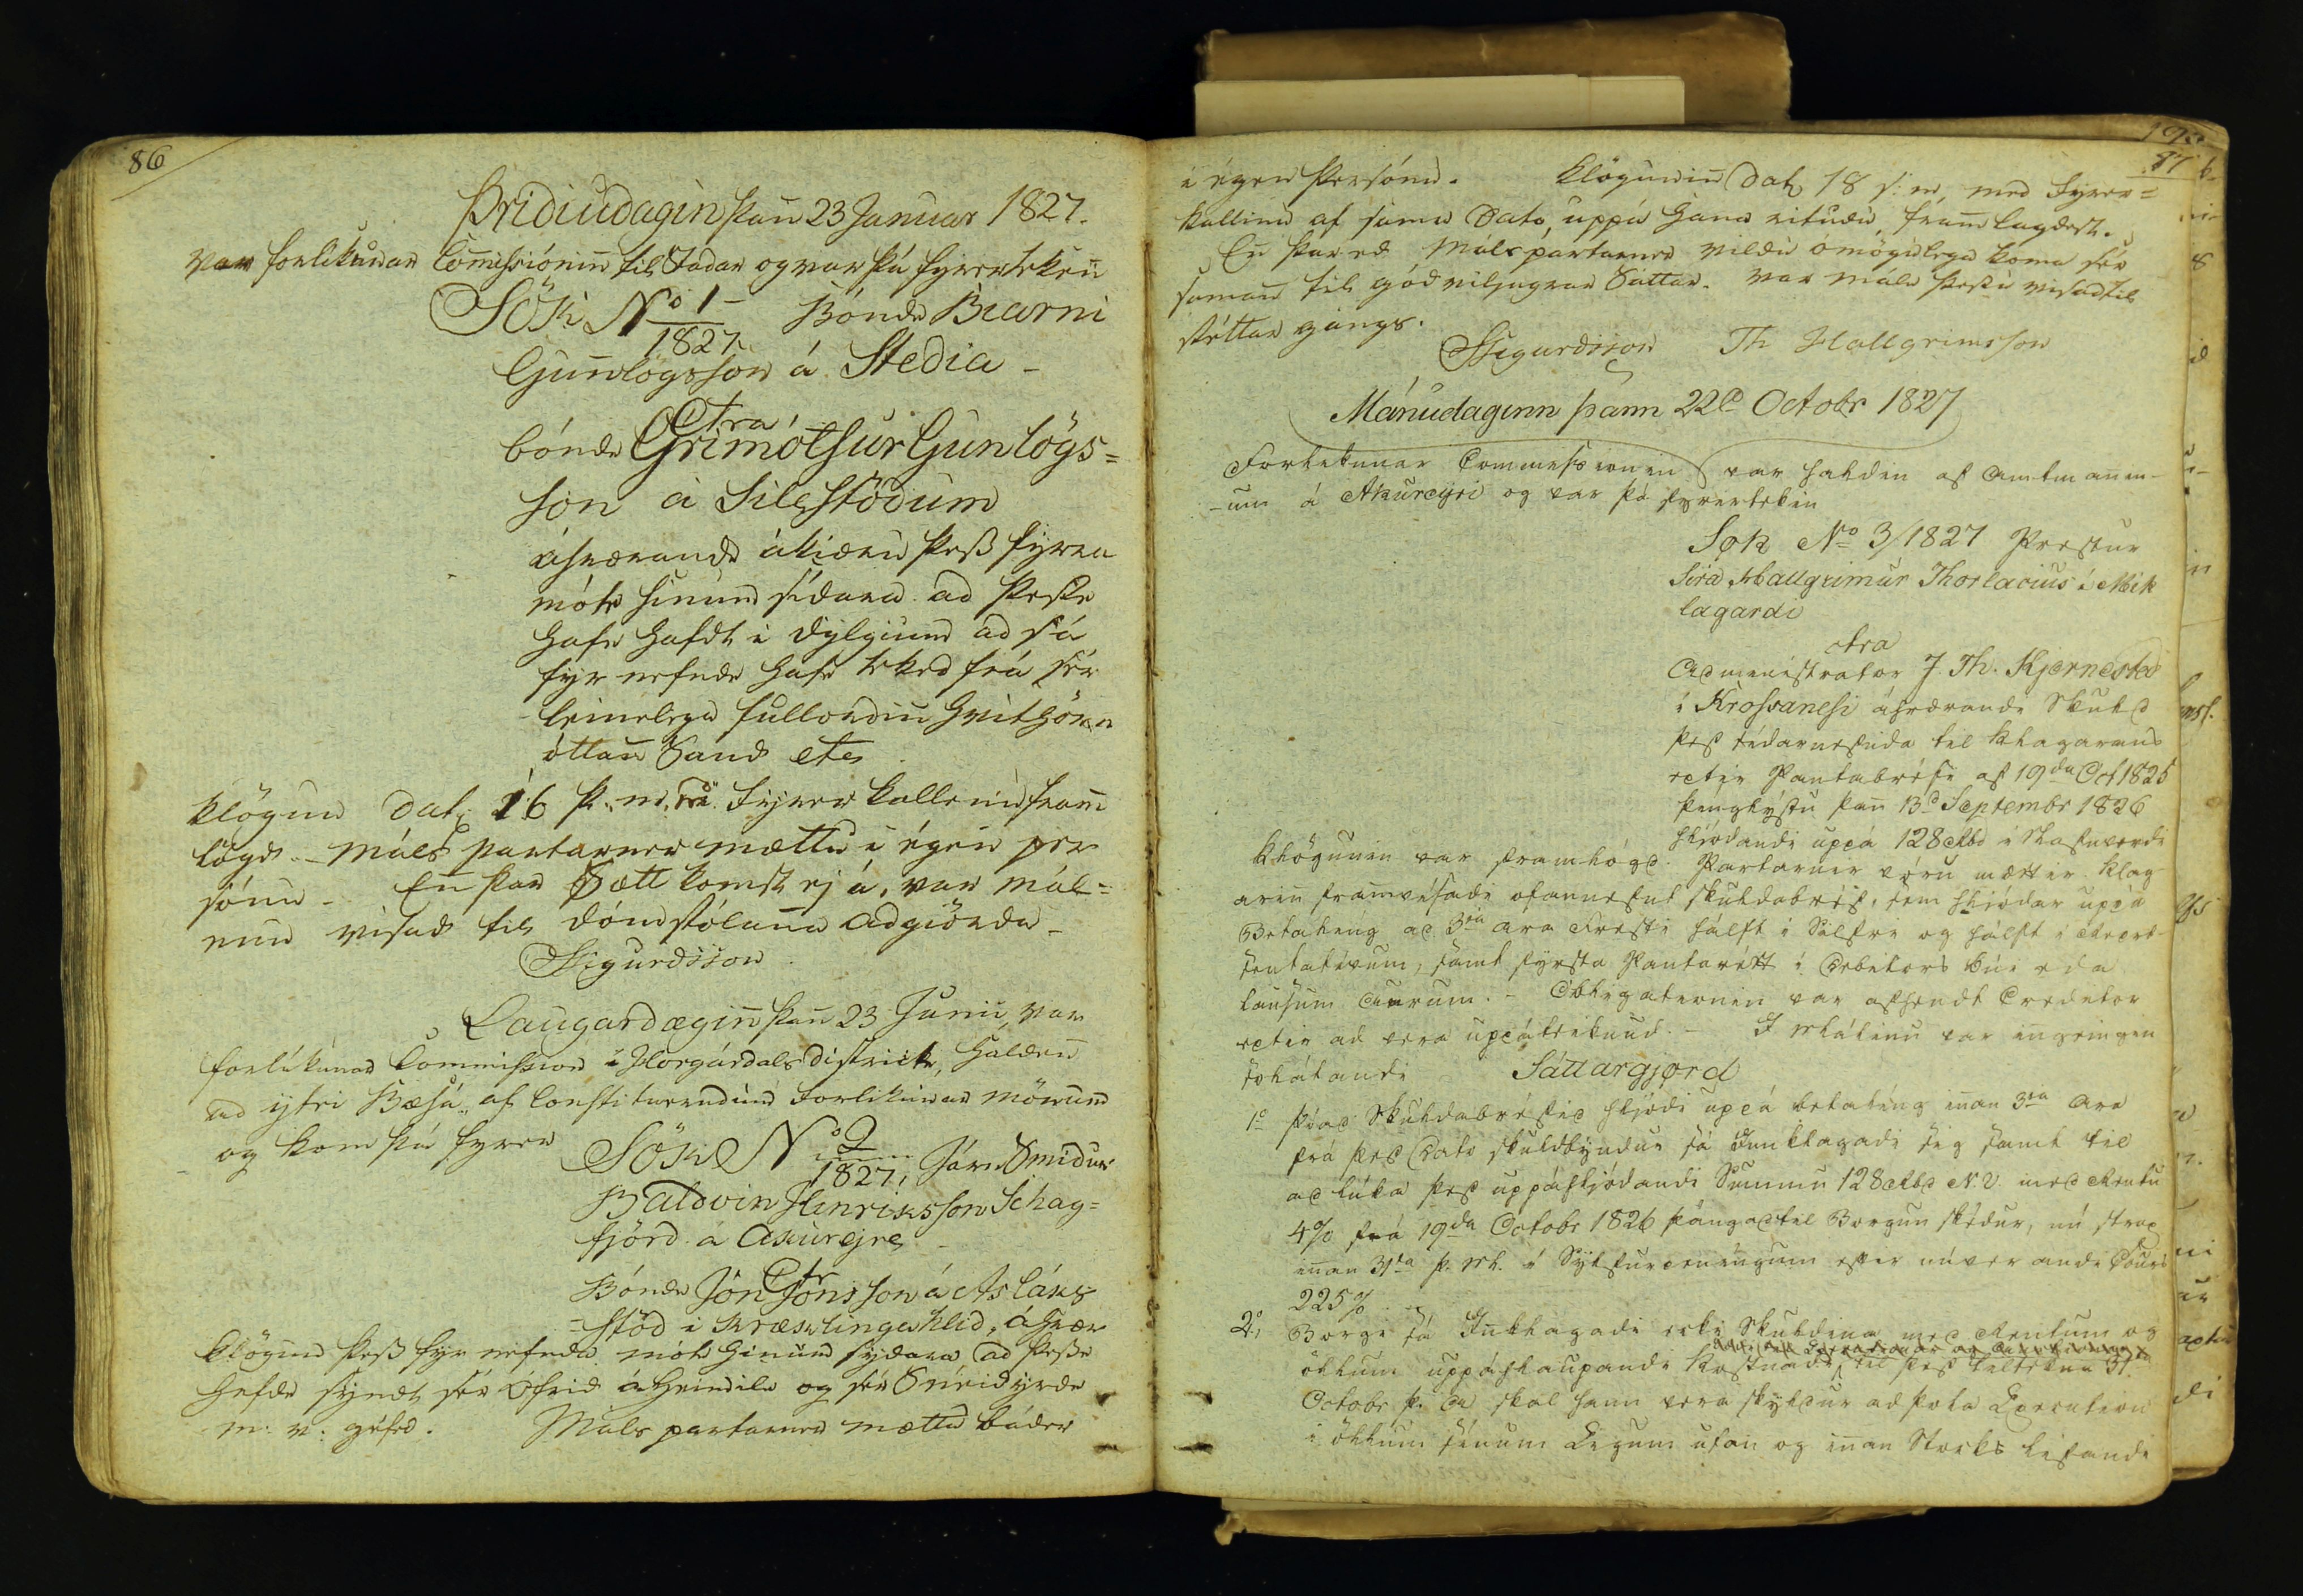 86
Þridiudagin þan̄ 23 Januar 1827.
var forlikunar Com̄issiónin til Stadar og var þá fyrertekin̄
Sök No 1/1827 Bónde Biarni
Gun̄lögsson á Stedia -
Ctra
bónde Grimólfur Gunlögs=
son á Silastödum
áhrærande ákiæru þess fyrra
móte hinum sídara ad þesse
hafe haft i dylgium ad sá
fyr nefnde hafe teked frá sér
leinelega fullordin hvithörn
óttan Saud etc
Klögun dat. 16 þ. m. Fyrerkallenu fram̄
lögd. - máls partarner mættu i égin per
sónu - En̄ þar Sætt komst ej á, var mál=
enu visad til dómstólan̄a adgiörda -
SSigurdsson
Laugardægin̄ þan̄ 23 Junii var
forlikunar Commission i Horgárdals district, halden̄
ad ytri Bæsá, af Constituerudum Forlikunar mönnum
og kom þá fyrer
Sök No 2/1827, Járn Smidur
Baldvin Hinriksson Schag=
fjörd á Akurejre
Ctr
Bónde Jón Jónsson á Asláks
=stöd i Kræklingahlid, áhrær
Klögun þess fyr nefnda móte hinum sydara ad þesse
hefde synt sér Ofrid á Heimile og sér Smeidyrde
m: v: géfed. Máls partarner mættu báder
87
i égen Persónu. Klögunin̄ dat 18 s: m, med Fyrer=
kallinu af sama Dato, uppá hana ritudu, fram̄lagdest.
En̄ þar ed Málspartarner vildu ómögulega koma sér
saman̄ til gódviljugrar Sáttar. var máli þessu visad til
réttar gángs.
SSigurdsson Th Hallgrimsson
Mánudaginn þann 22d Octobr 1827
Forlikunar Commissionin var haldin af Amtman̄in-
-um á Akureyri og var þá fyrertekin
Søk No 3/1827 Prestur
Sira Hallgrimur Thorlacius i Mik
lagardi
ctra
Administrator J. Th. Kjernested
i Krossanesi áhrærande Skuld
þess sidarnefnda til klagarans
eptir Pantabréfi af 19da Oct 1825
þinglýstu þan̄ 13d Septembr 1826
hljódandi uppá 128 Rbd i Nafnverdi
Klögunin var framlögd. Partarnir vóru mættir. Klag
arin̄ fram̄vísadi ofannefnt skuldabréf, sem hljódar uppá
Betaling ad 3ia ara Fresti hálft i Silfri og hálft i Repræ-
sentativum, samt fyrsta Pantarétt i Debitors búi eda
lausum Aurum. - Obligationin var afhendt Creditor
eptir ad vera uppáteiknud. - I Málinu var in̄gengin
sohlátandi Sáttargjørd
1o Þó ad Skuldabréfid hljódi uppá betaling in̄an 3ia ara
frá þess Dato skuldbyndur sá In̄klagadi sig samt til
ad lúka þess uppáhljódandi Summu 128 Rbd N.V. med Rentu
4% frá 19da Octobr 1826 þángad til Borgun skédur, nú strax
in̄an 31ta þ. M. i Sylfurpeníngum efter núverandi Cours
225%. -
2o, Borgi sá In̄klagadi ecki Skuldina med Rentum og
öllum uppáhlaupandi Kostnadi, til þess tiltekna 31ta
Octobr þ. A. skal hann vera skyldur ad þola Execution
i öllum sínum Eigum utan og in̄an Stocks lifandi